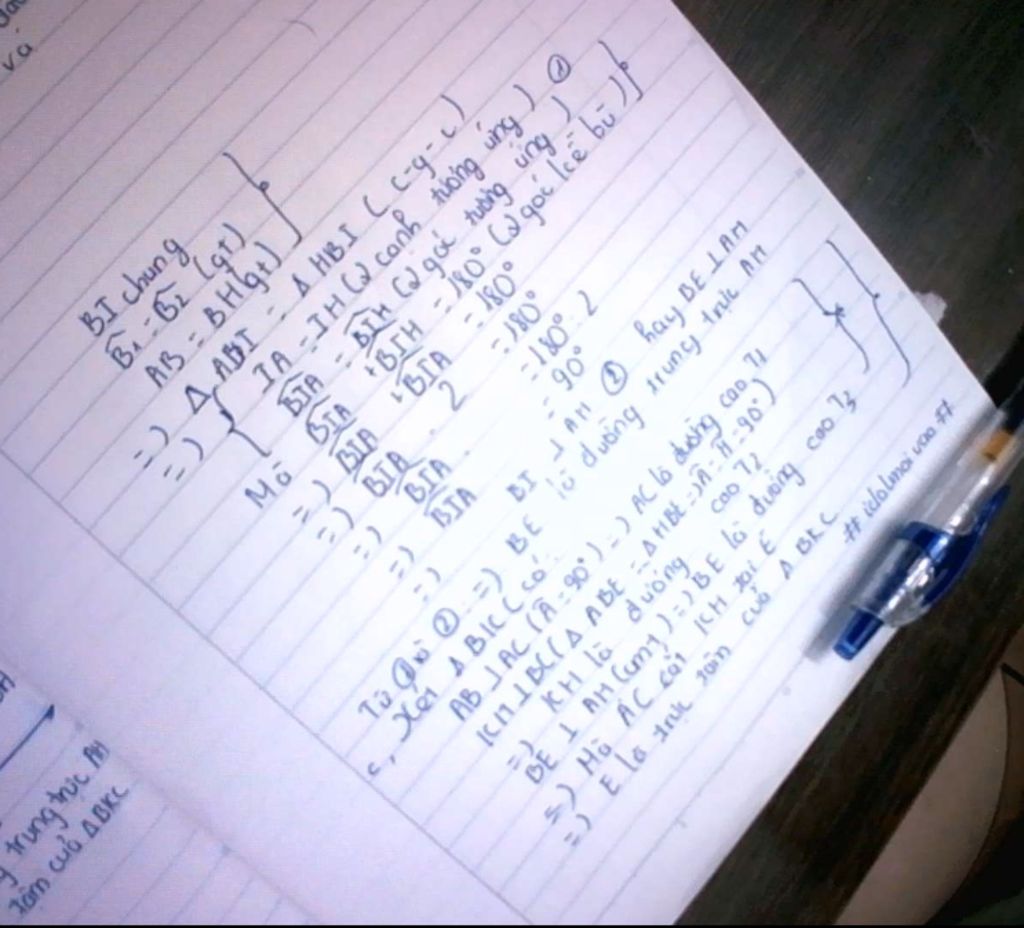 và
BI chung
B̂₁ = B̂₂ (gt)
AB = BH (gt)
=) Δ ABI = Δ HBI (c-g-c)
=) IA = IH (2 cạnh tương ứng) ①
BIA = BIH (2 góc tương ứng)
Mà BIA + BIH = 180° (2 góc kề bù)
=) BIA + BIA = 180°
=) BIA . 2 = 180°
=) BIA = 180° : 2
=) BIA = 90°
=) BI ⊥ AM ② hay BE ⊥ AM
Từ ① và ② =) BE là đường trung trực AM
c, Xét Δ BKC có:
AB ⊥ AC (Â = 90°) =) AC là đường cao T₁
KH ⊥ BC (Δ ABE = Δ HBE =) Â = Ĥ = 90°)
=) KH là đường cao T₂
BE ⊥ AM (cmt) =) BE là đường cao T₃
=) Mà AC cắt KH tại E
=) E là trực tâm của Δ BKC
## idolmoi vao ##
trung trực AH
tâm của ΔBKC